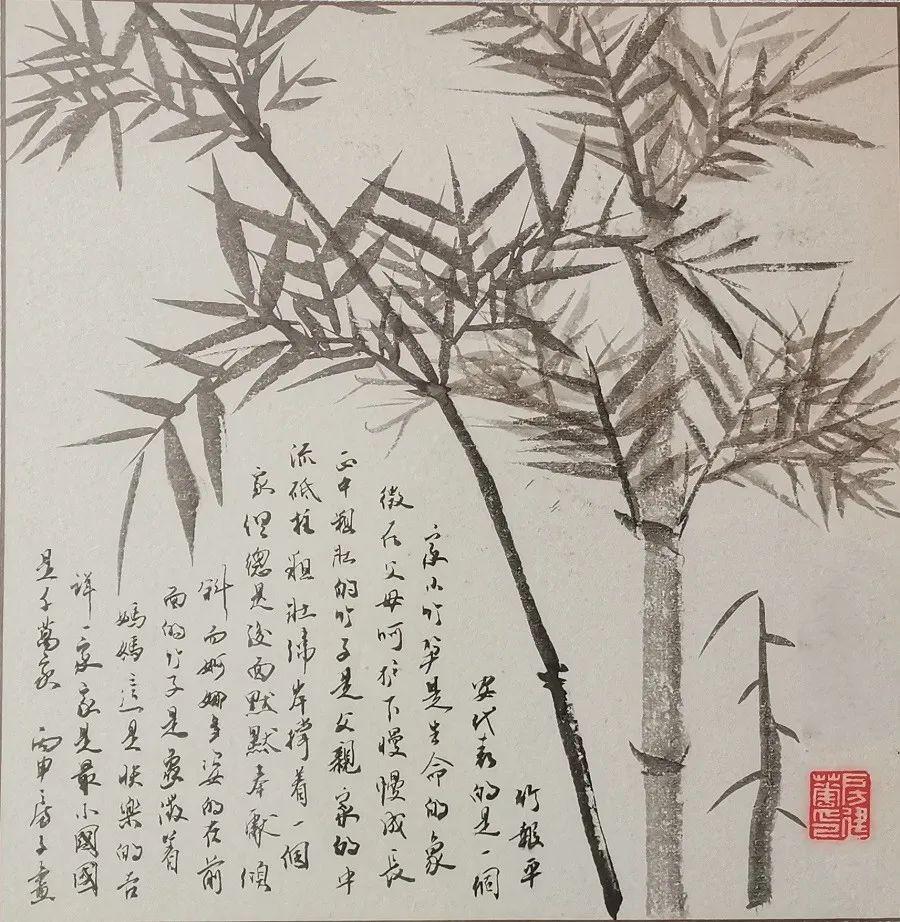 竹報平
安代表的是一個
家小竹笋是生命的象
徵在父母呵护下慢慢成長
正中粗壯的竹子是父親家的中
流砥柱粗壯偉岸撑着一個
家但總是後面默默奉献傾
斜而婀娜多姿的在前
面的竹子是着
媽媽這是快樂的吉
祥一家家是最小國國
是千萬家 丙申 房子畫